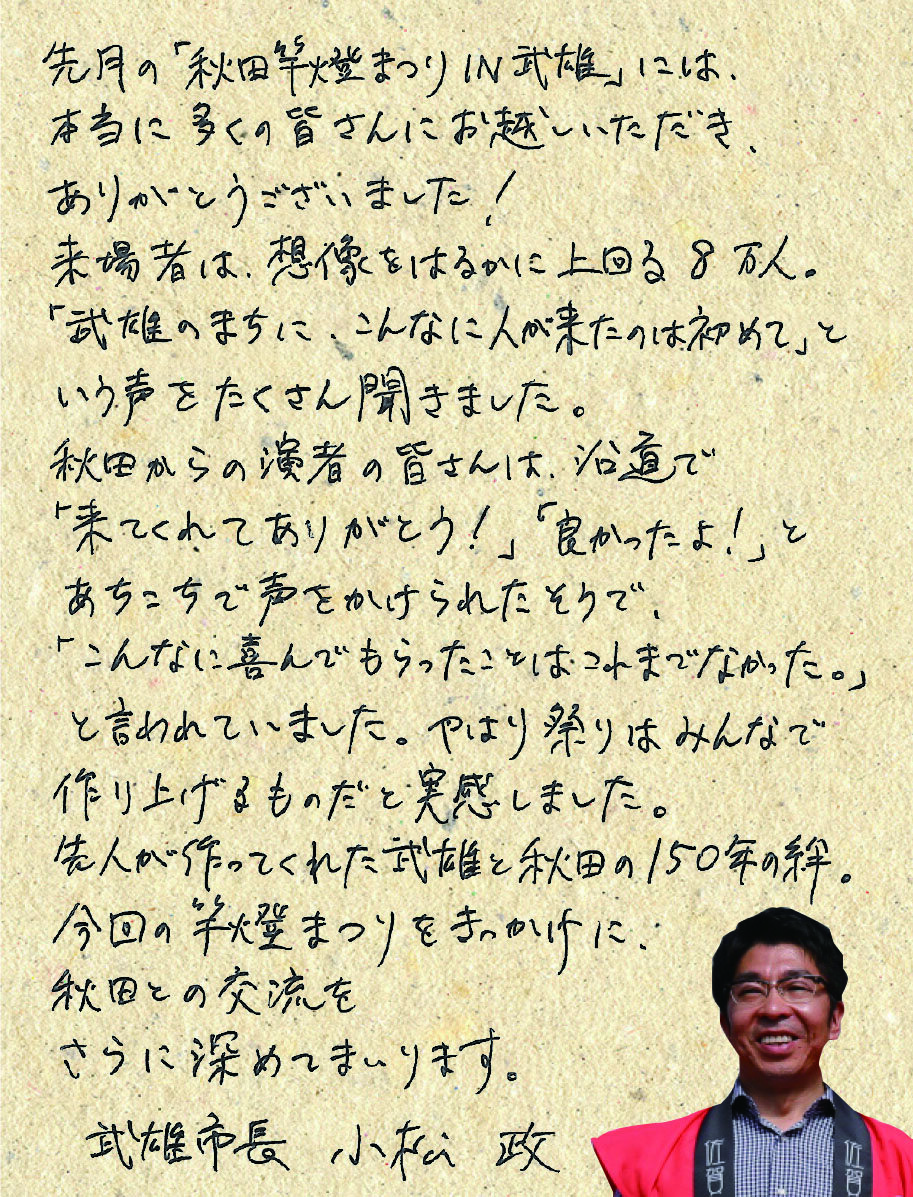 先月の「秋田竿燈まつりIN武雄」には、
本当に多くの皆さんにお越しいただき、
ありがとうございました！
来場者は、想像をはるかに上回る8万人。
「武雄のまちに、こんなに人が来たのは初めて」と
いう声をたくさん聞きました。
秋田からの演者の皆さんは、沿道で
「来てくれてありがとう！」「良かったよ！」と
あちこちで声をかけられたそうで、
「こんなに喜んでもらったことはこれまでなかった。」
と言われていました。やはり祭りはみんなで
作り上げるものだと実感しました。
先人が作ってくれた武雄と秋田の150年の絆。
今回の竿燈まつりをきっかけに、
秋田との交流を
さらに深めてまいります。
武雄市長 小松 政
佐賀
佐賀